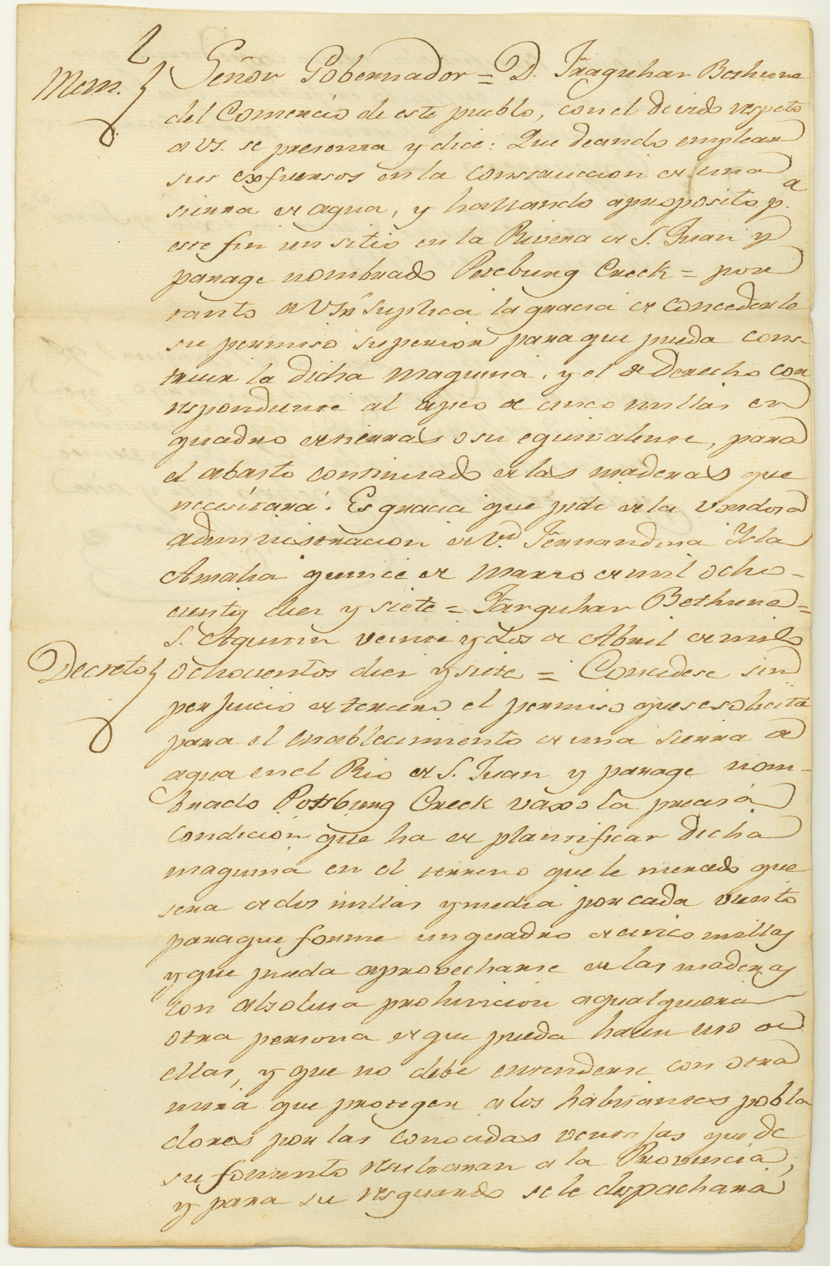 Mem.l Señor Gobernador = D. Farquhar Bethune
del Comercio de este pueblo, con el devido respeto
a VS. se presenta y dice: Que deando emplear
sus esfuersos en la construccion de una
sierra de agua, y hallando aproposito p.a
este fin un sitio en la Rivera de S. Juan y
parage nombrado Potsburg Creek = por
tanto a VS. suplica la gracia de concederle
su permiso superior para que pueda cons-
truir la dicha maquina, y el de derecho cor
respondiente al apeo de cinco millas en
quadro de tierras o su equivalente, para
el abasto continuado de las maderas que
necesitará. Es gracia que pide de la
administracion de V.S. Fernandina Ysla
Amalia quince de Marzo de mil ocho-
cientos diez y siete = Farquhar Bethune =
Decreto S. Agustin veinte y dos de Abril de mil
ochocientos diez y siete = Concedese sin
perjuicio de tercero el permiso que se solicita
para el establecimiento de una sierra de
agua en el Rio de S. Juan y parage nom-
brado Potsburg Creek vaxo la precisa
condición que ha de plantificar dicha
maquina en el terreno que le mercedo que
sera de dos millas y media por cada viento
para que forme un quadro de cinco millas
y que pueda aprovecharse de las maderas
con absoluta prohivición a qualquiera
otra persona de que pueda hacer uso de
ellas, y que no debe entenderse con otra
mira que proteger a los habitantes pobla
dores por las conocidas ventajas que de
su fomento resultaran a la Provincia;
y para su resguardo se le despachará